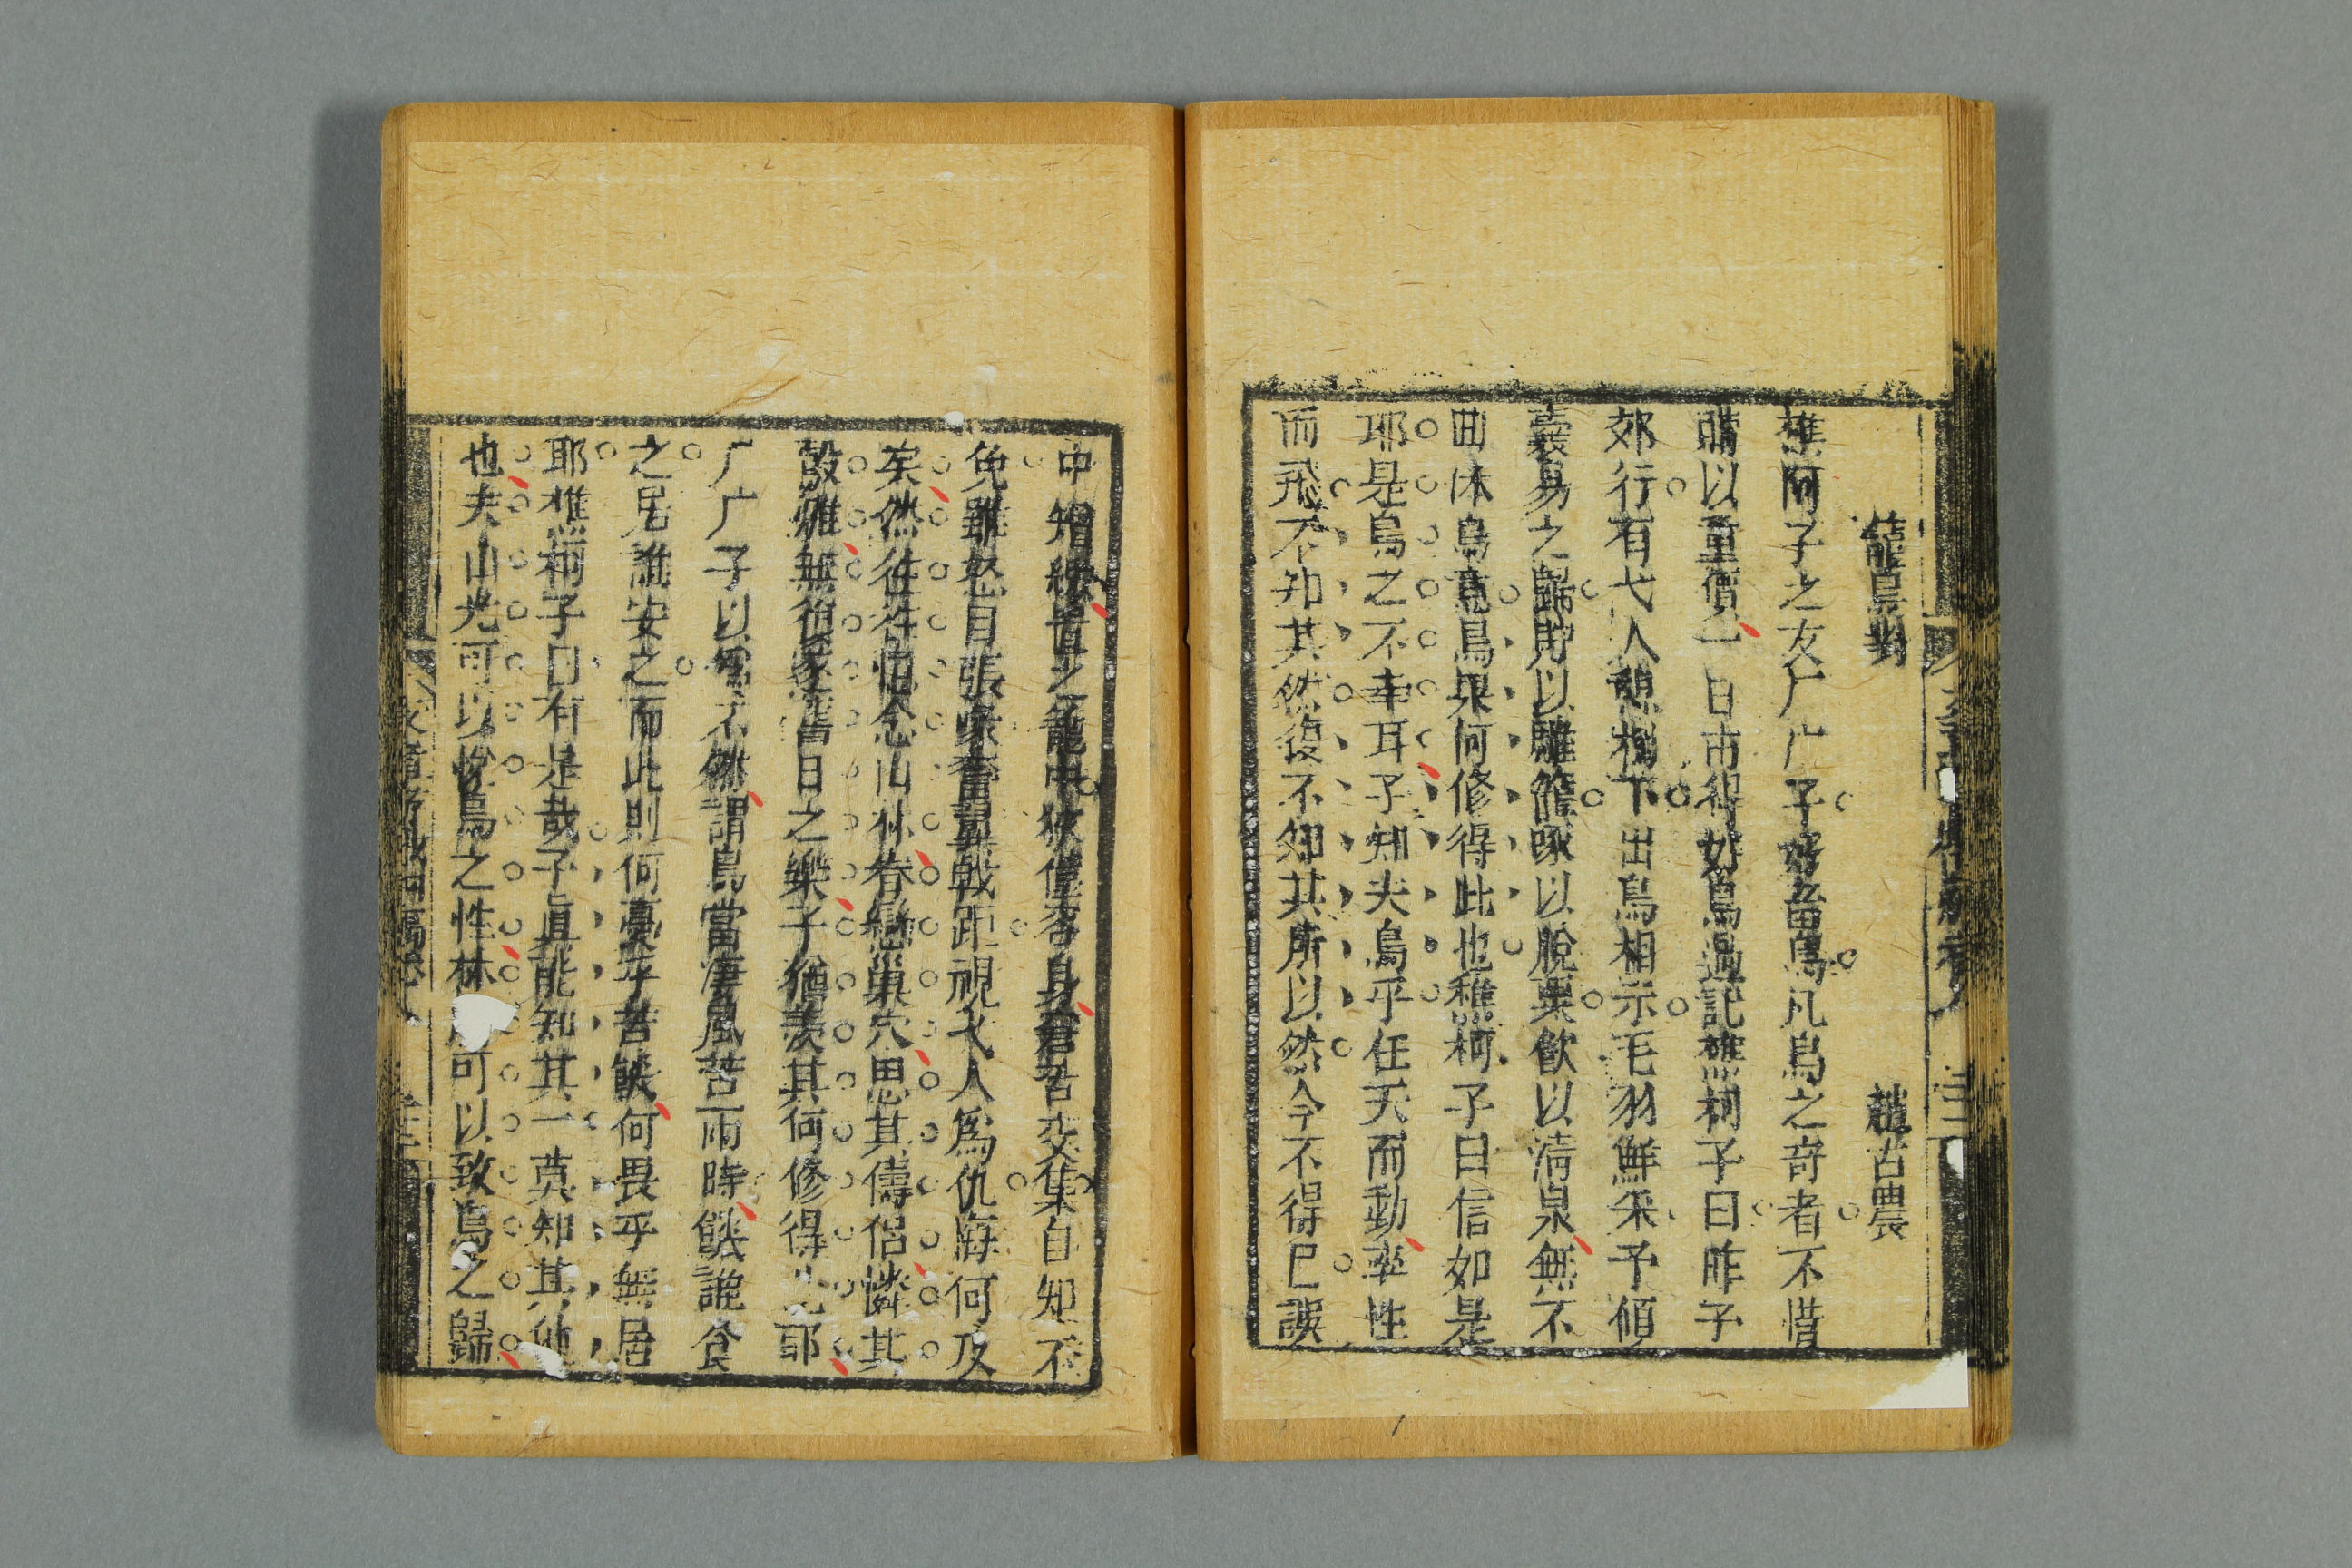 籠鳥對 趙古農
樵柯子之友厂广子好畜鳥凡鳥之奇者不惜
購以重價一日市得好鳥過訪樵柯子曰昨予
郊行有弋人憩樹下出鳥相示毛羽鮮采予傾
囊易之歸貯以雕籠啄以脫粟飲以清泉無不
曲体鳥意鳥果何修得此也樵柯子曰信如是
耶是鳥之不幸耳子知夫鳥乎任天而動率性
而飛不知其然復不知其所以然今不得已誤
中矰繳置之籠中狹僅容身窘苦交集自知不
免雖怒目張喙奮翼戟距視弋人為仇海何及
矣然徃徃恒念山林眷戀巢穴思其儔侶憐其
鷇雛無復家舊日之樂子猶羨其何修得此耶
厂广子以為不然謂鳥當凄風苦雨時饑誰食
之居誰安之而此則何憂乎苦饑何畏乎無居
耶樵柯子曰有是哉子眞能知其一莫知其他
也夫山光可以悅鳥之性林可以致鳥之歸